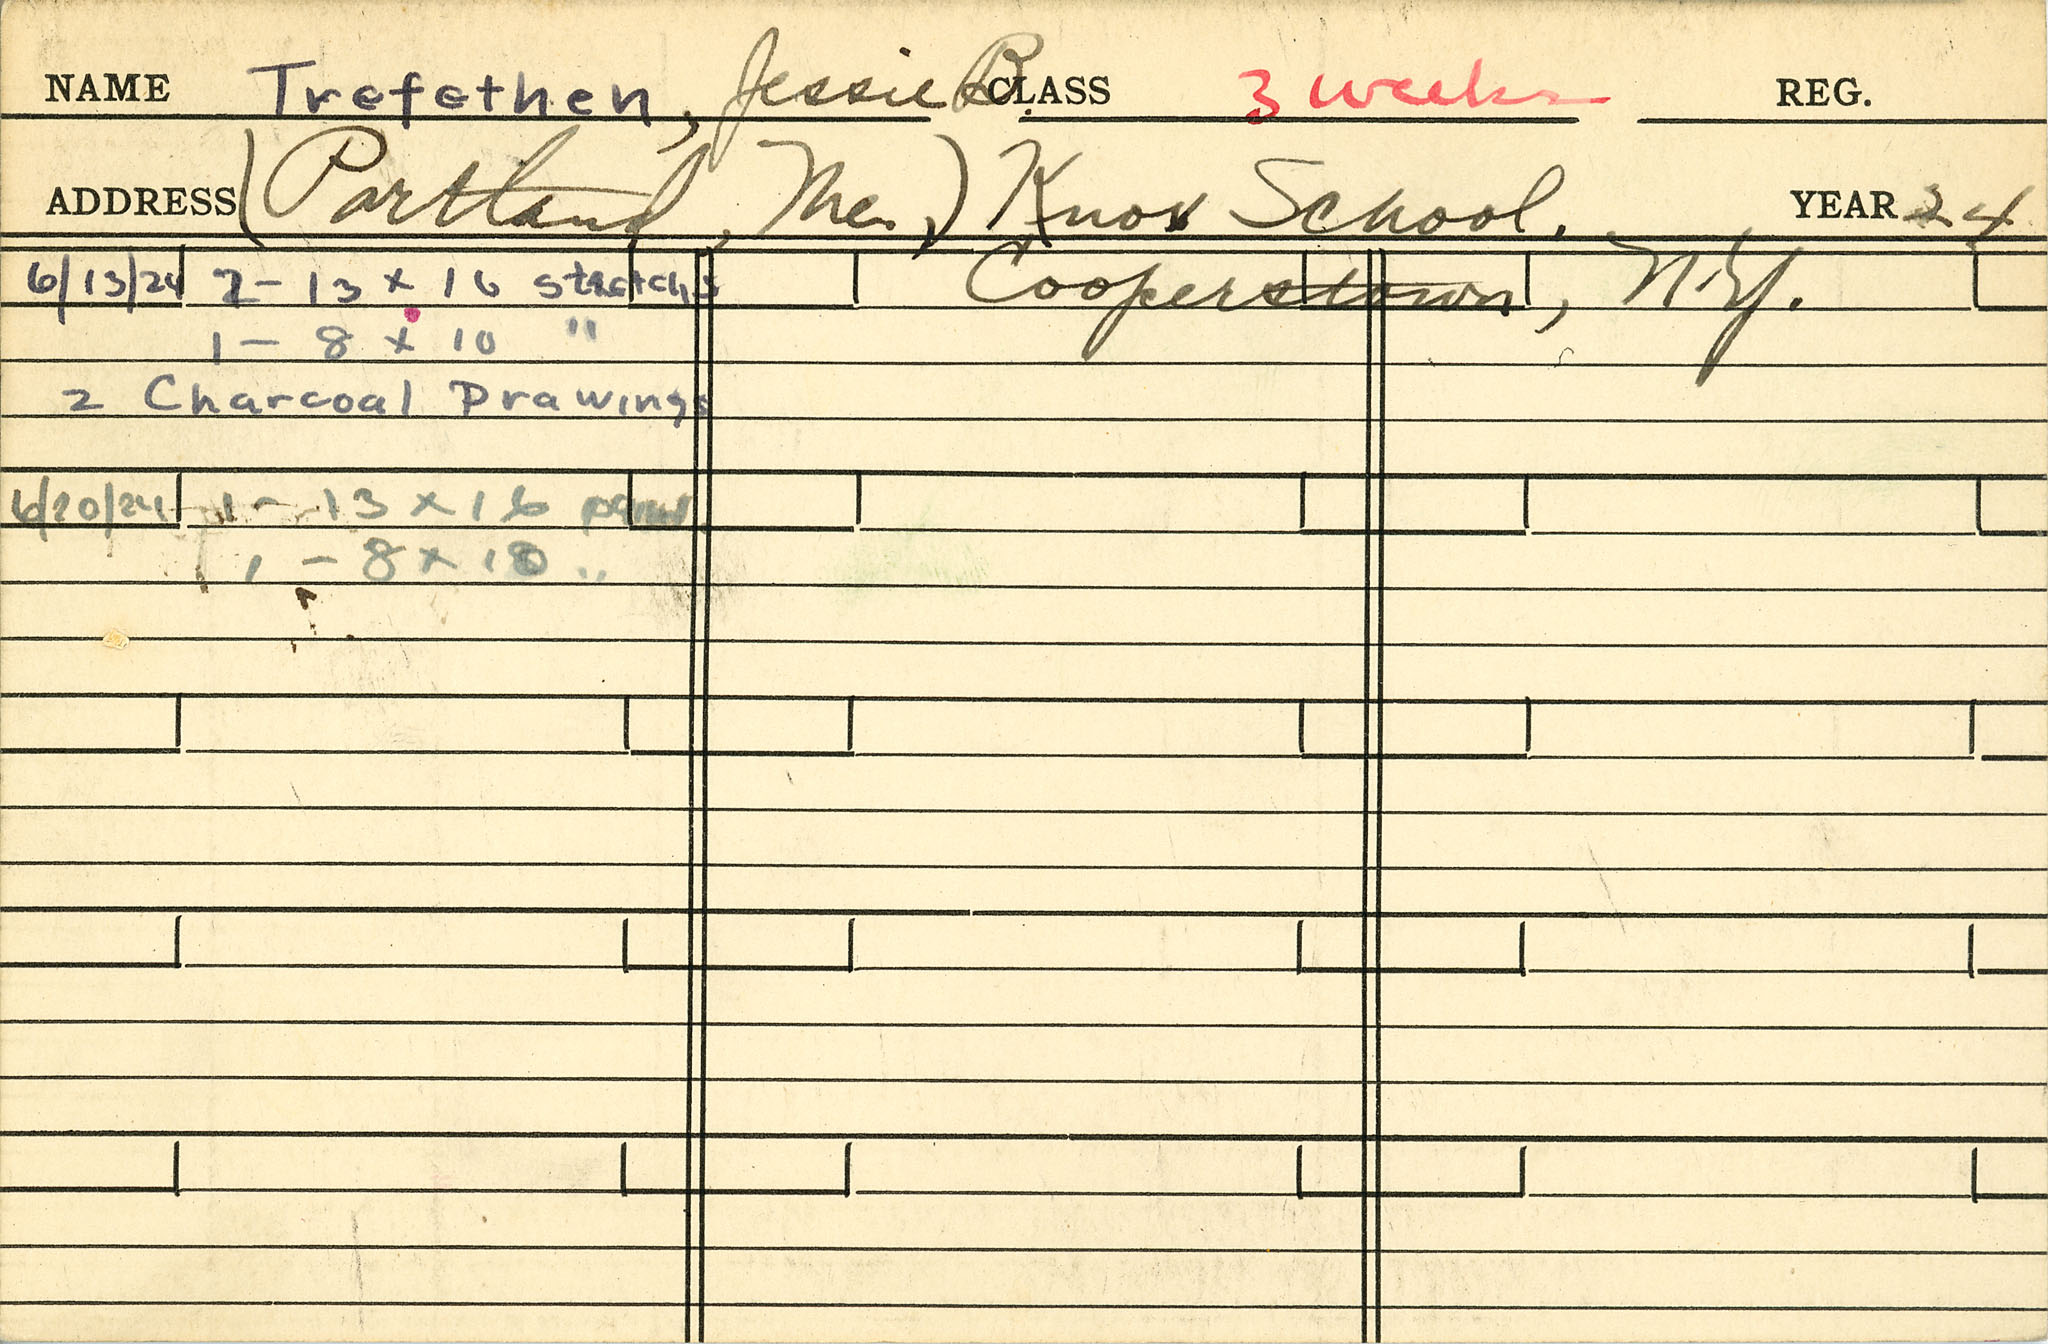 NAME Trefethen, Jessie B. CLASS 3 weeks REG.
ADDRESS (Portland, Me.,) Knox School. YEAR 24
Cooperstown, N.Y.
6/13/24 2 - 13 x 16 stretchs
1 - 8 x 10 "
2 Charcoal Drawings
6/20/24 1 - 13 x 16
1 - 8 x 10 "